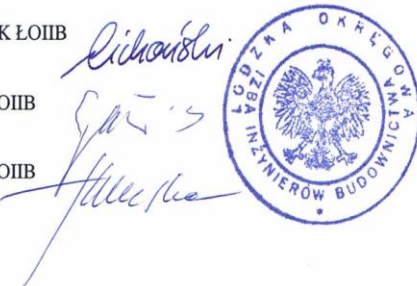 K ŁOIIB
Cichoński
OIIB
OIIB
ŁÓDZKA OKRĘGOWA
IZBA INŻYNIERÓW BUDOWNICTWA